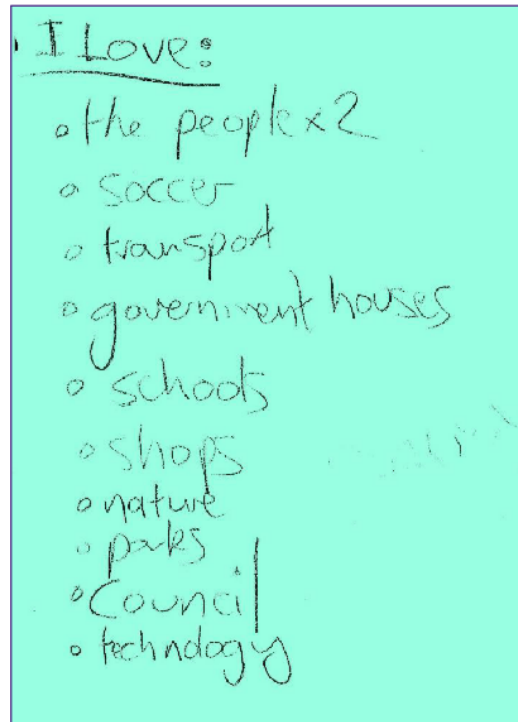 • I Love:
• the people x2
• soccer
• transport
• government houses
• schools
• shops
• nature
• parks
• Council
• technology